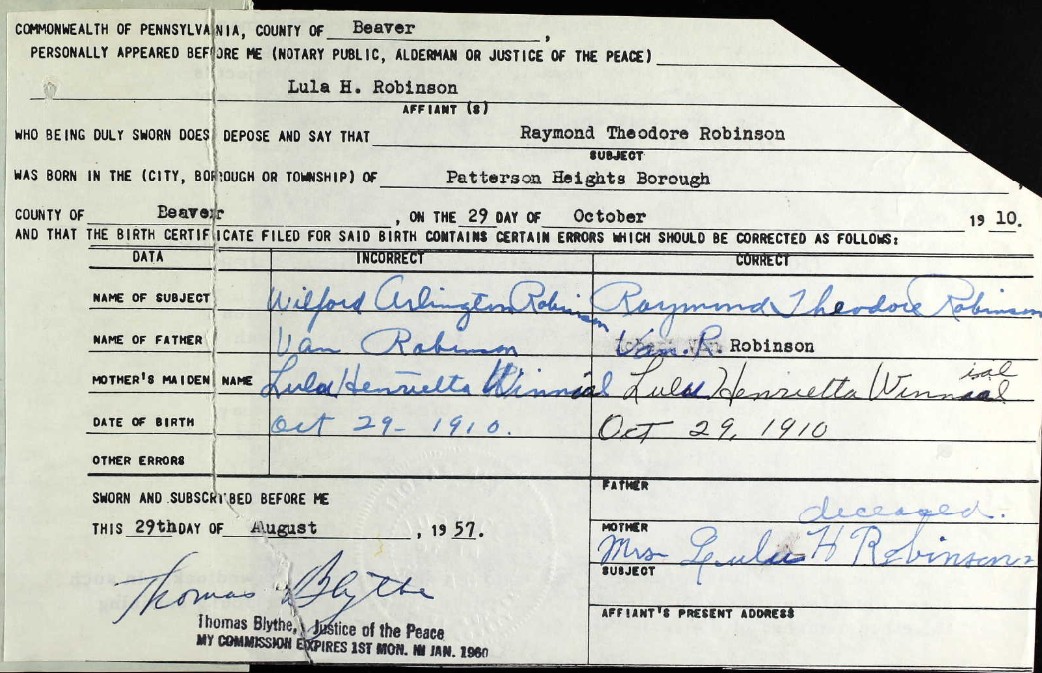 COMMONWEALTH OF PENNSYLVANIA, COUNTY OF Beaver ,
PERSONALLY APPEARED BEFORE ME (NOTARY PUBLIC, ALDERMAN OR JUSTICE OF THE PEACE)
Lula H. Robinson
AFFIANT (S)
WHO BEING DULY SWORN DOES DEPOSE AND SAY THAT Raymond Theodore Robinson
SUBJECT
WAS BORN IN THE (CITY, BOROUGH OR TOWNSHIP) OF Patterson Heights Borough ,
COUNTY OF Beaver , ON THE 29 DAY OF October 19 10.
AND THAT THE BIRTH CERTIFICATE FILED FOR SAID BIRTH CONTAINS CERTAIN ERRORS WHICH SHOULD BE CORRECTED AS FOLLOWS:
DATA INCORRECT CORRECT
NAME OF SUBJECT Wilford Arlington Robinson Raymond Theodore Robinson
NAME OF FATHER Van Robinson Van. R. Robinson
MOTHER'S MAIDEN NAME Lula Henrietta Lula Henrietta
DATE OF BIRTH Oct 29- 1910. Oct 29, 1910
OTHER ERRORS
SWORN AND SUBSCRIBED BEFORE ME
THIS 29th DAY OF August , 19 57.
Thomas Blythe
Thomas Blythe, Justice of the Peace
MY COMMISSION EXPIRES 1ST MON. IN JAN. 1960
FATHER
deceased.
MOTHER
Mrs Lula H Robinson
SUBJECT
AFFIANT'S PRESENT ADDRESS